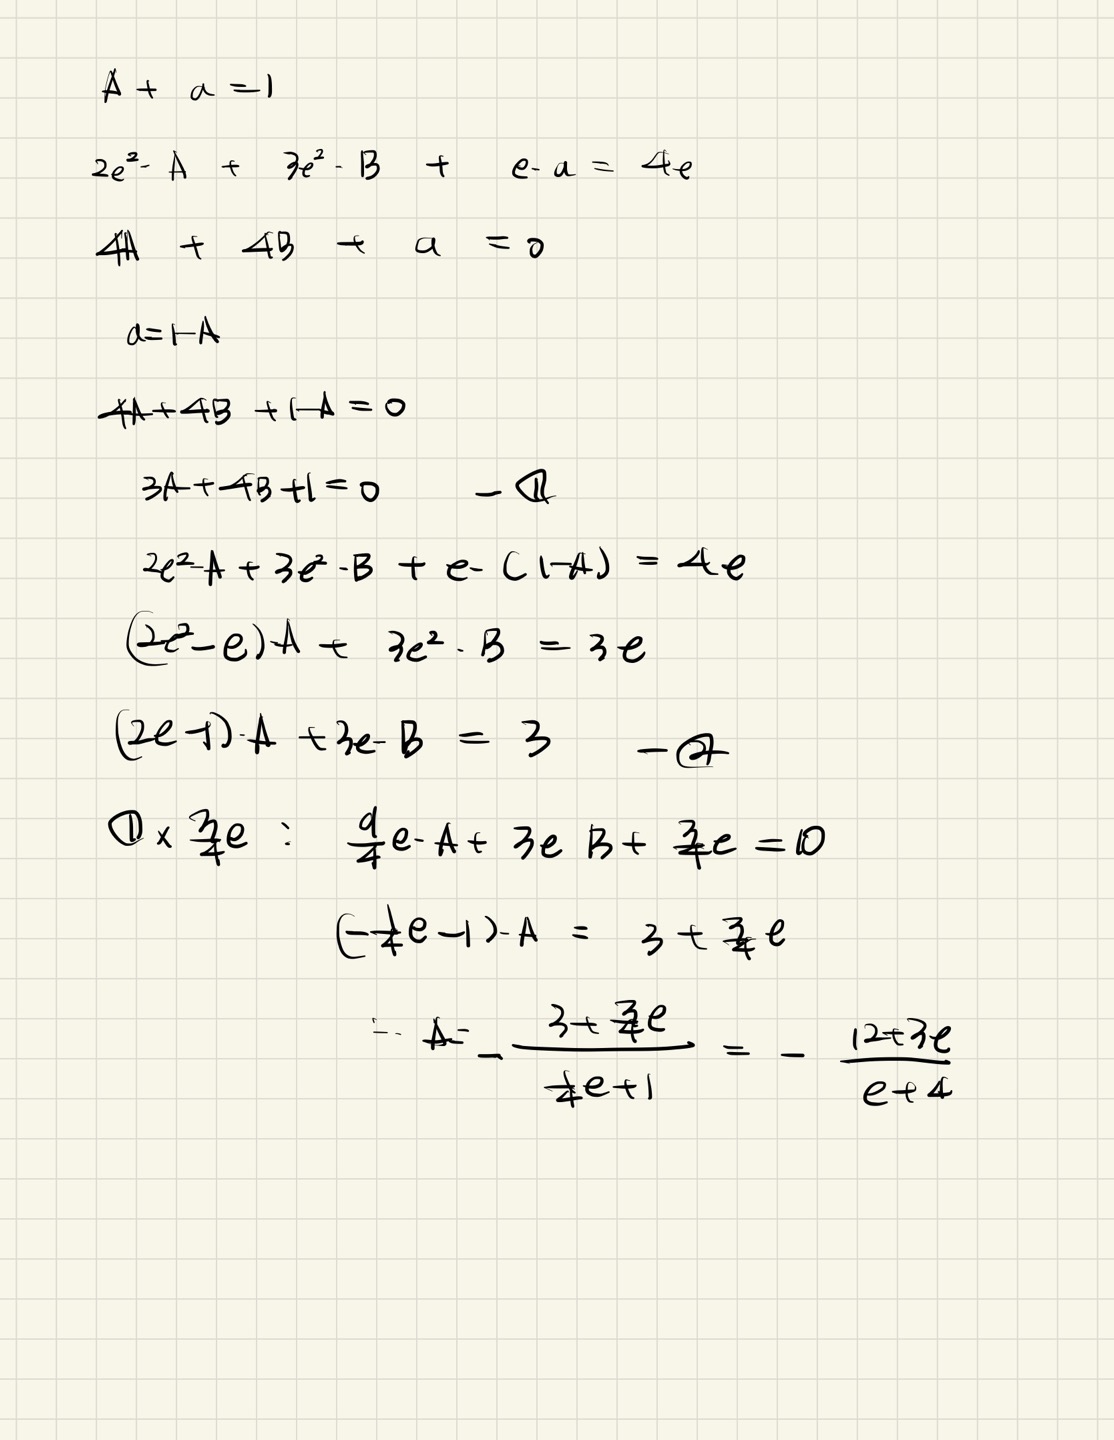 A + a = 1
2e²·A + 3e²·B + e·a = 4e
4A + 4B + a = 0
a = 1-A
4A + 4B + 1-A = 0
3A + 4B + 1 = 0 - ①
2e²·A + 3e²·B + e·(1-A) = 4e
(2e²-e)·A + 3e²·B = 3e
(2e-1)·A + 3e·B = 3 - ②
① × 3/4 e : 9/4 e·A + 3e B + 3/4 e = 0
(-1/4 e - 1)·A = 3 + 3/4 e
∴ A = - (3 + 3/4 e)/(1/4 e + 1) = - (12+3e)/(e+4)